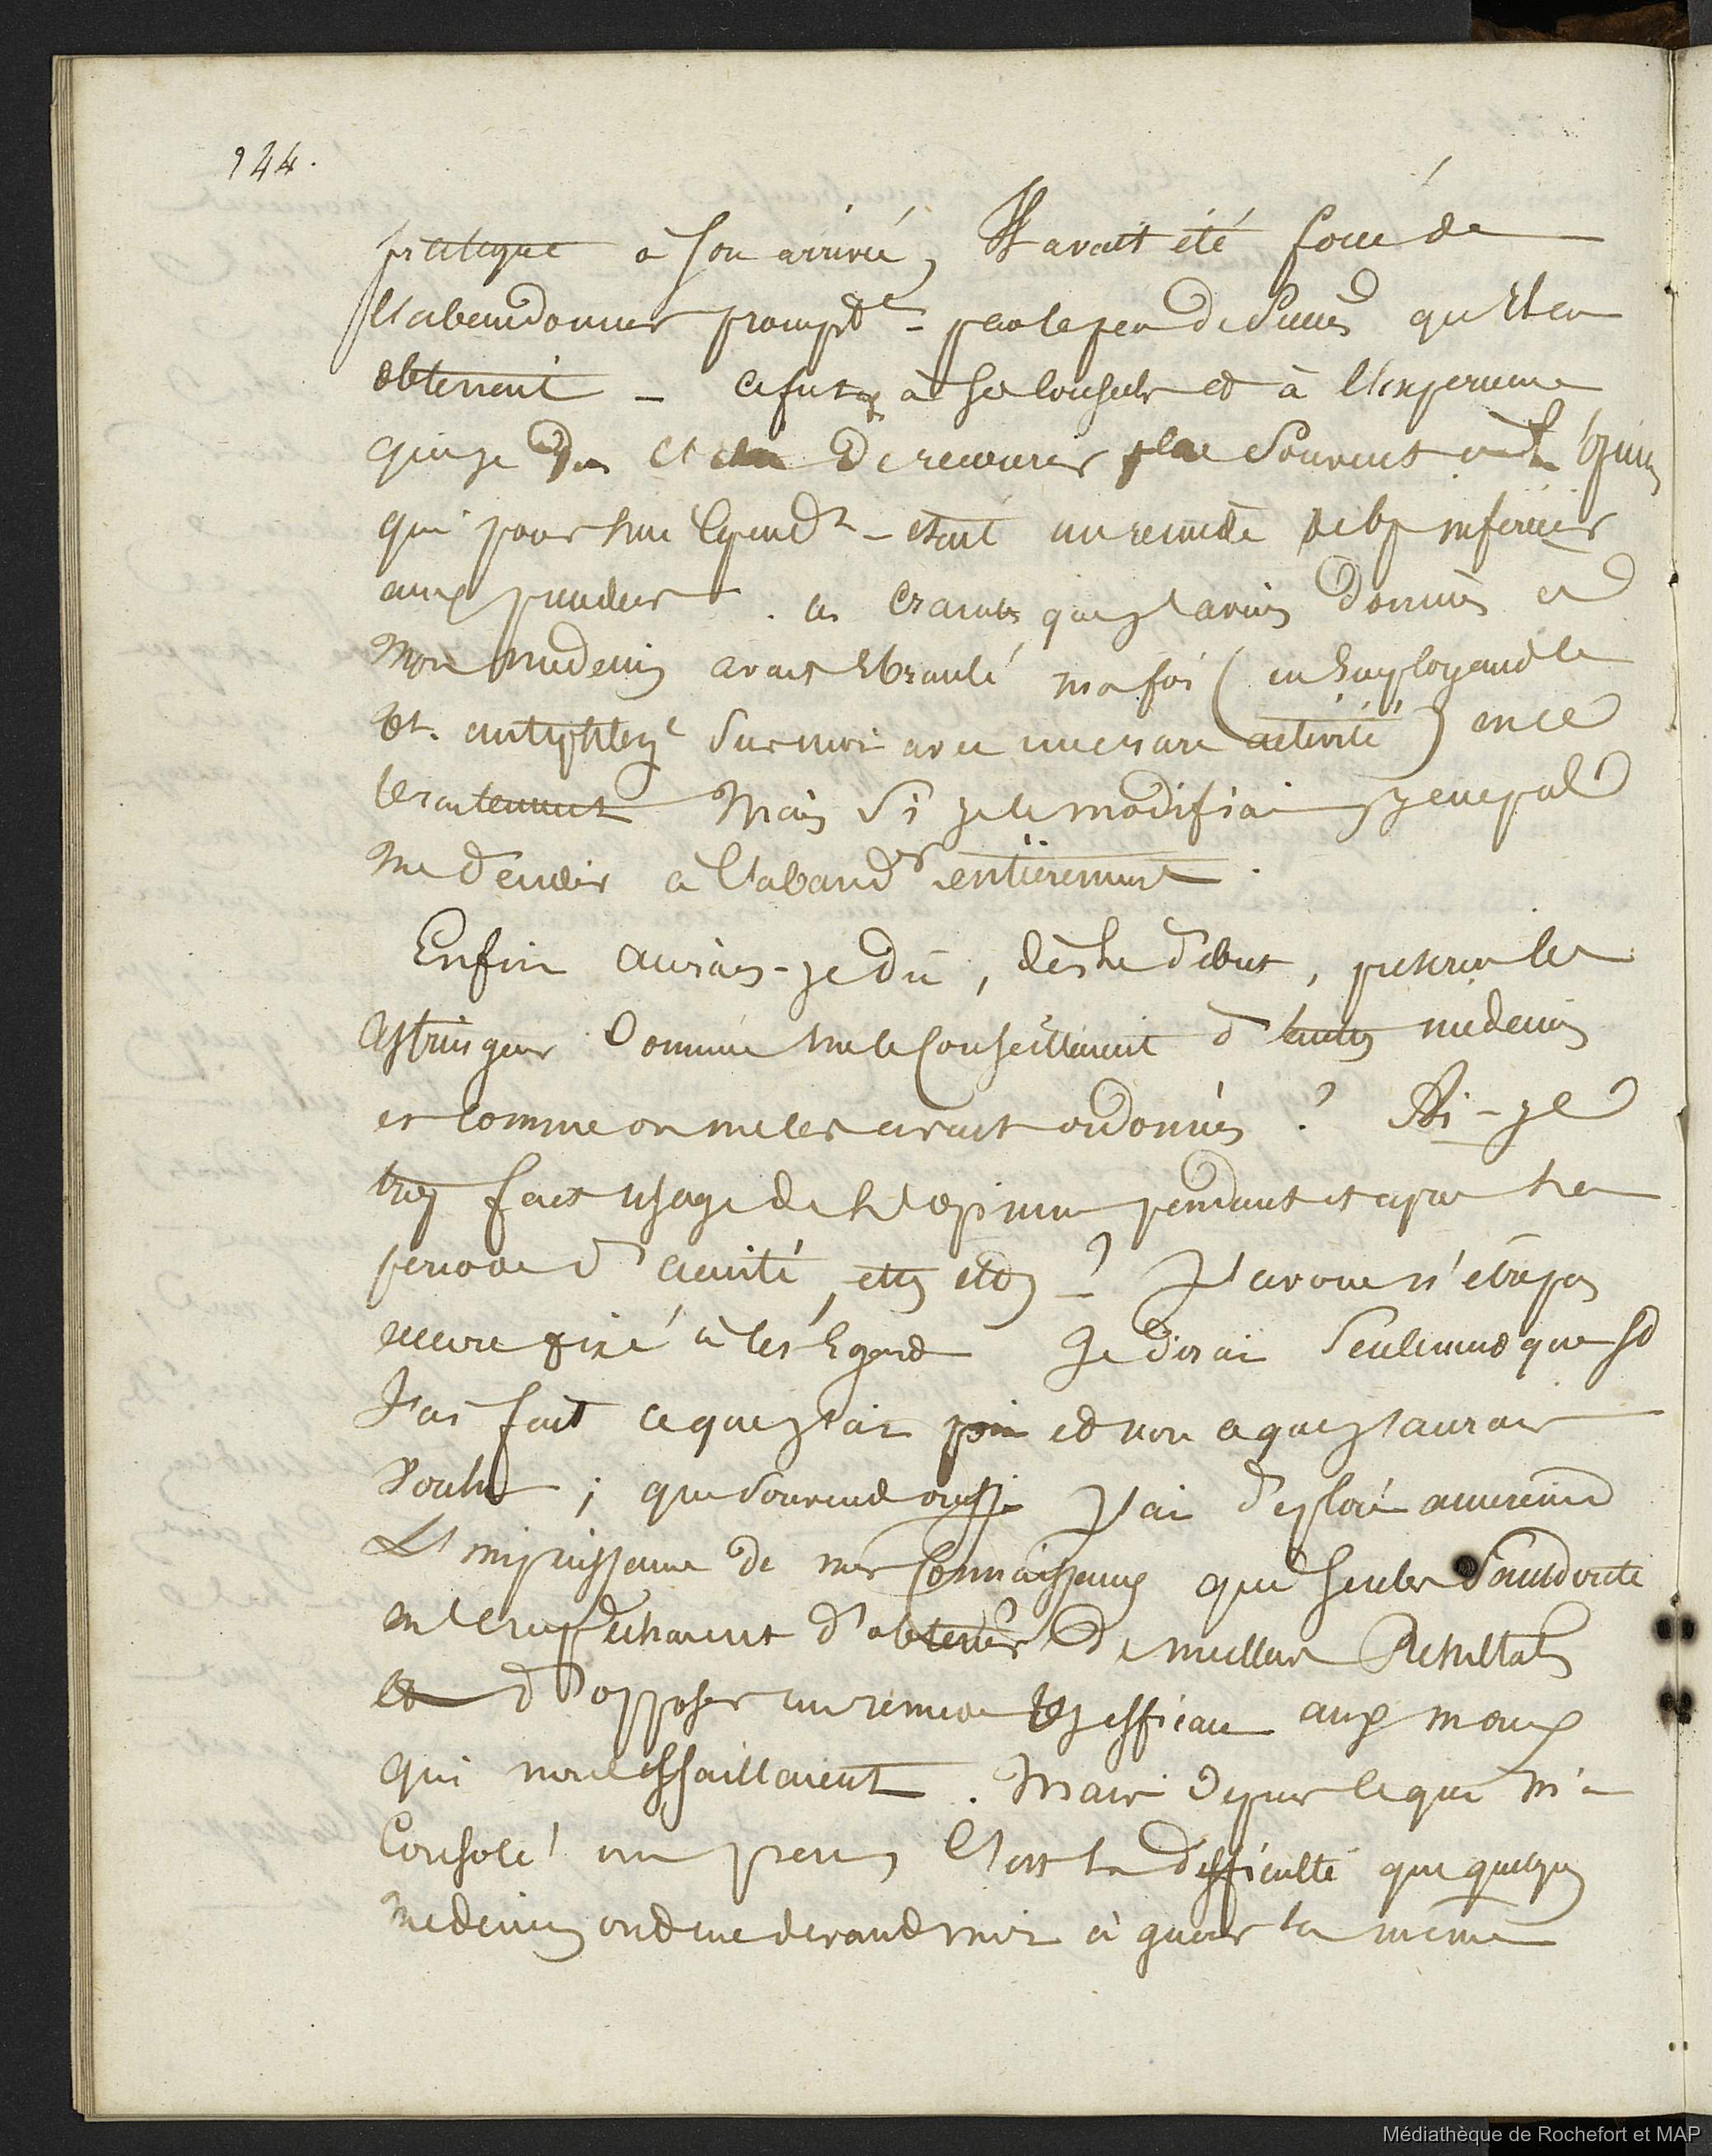 144.
pratique à son arrivée, Il avait été forcé de
l'abandonner prompt.t - par le peu de succès qu'il en
obtenait - ce fut à ses conseils et à l'experience
que je dus de recourir plus souvent
qui pour lui cepend.t - etait un remède inferieur
aux . ces craintes que j'avais données et
Mon medecin avait ébranlé ma foi ( en employant le
tt. antiphlog.e sur moi avec une rare activité ) en ce
traitement Mais si je le modifiai je ne pus
me decider à l'aband.er entièrement.
Enfin aurais-je dû, dès le début, prescrire les
astringens comme me le conseillaient d'autres medecins
et comme on me les avait ordonnés ? Ai-je
trop fait usage de l'opium pendant et après la
periode d'acuité, etc etc - ? J'avoue n'être pas
encore fixé à cet égard Je dirai seulement que si
J'ai fait ce que j'ai pu et non ce que j'aurais
voulu ; que souvent aussi j'ai deploré amerement
L'impuissance de mes connaissances que seules sans doute
m'empechaient d'obtenir de meilleurs Resultats
et d'opposer un remede efficace aux maux
qui nous assaillaient. Mais depuis ce qui m'a
consolé un peu, c'est la difficulté que quelques
medecins ont eue devant moi à guerir la même
Médiathèque de Rochefort et MAP